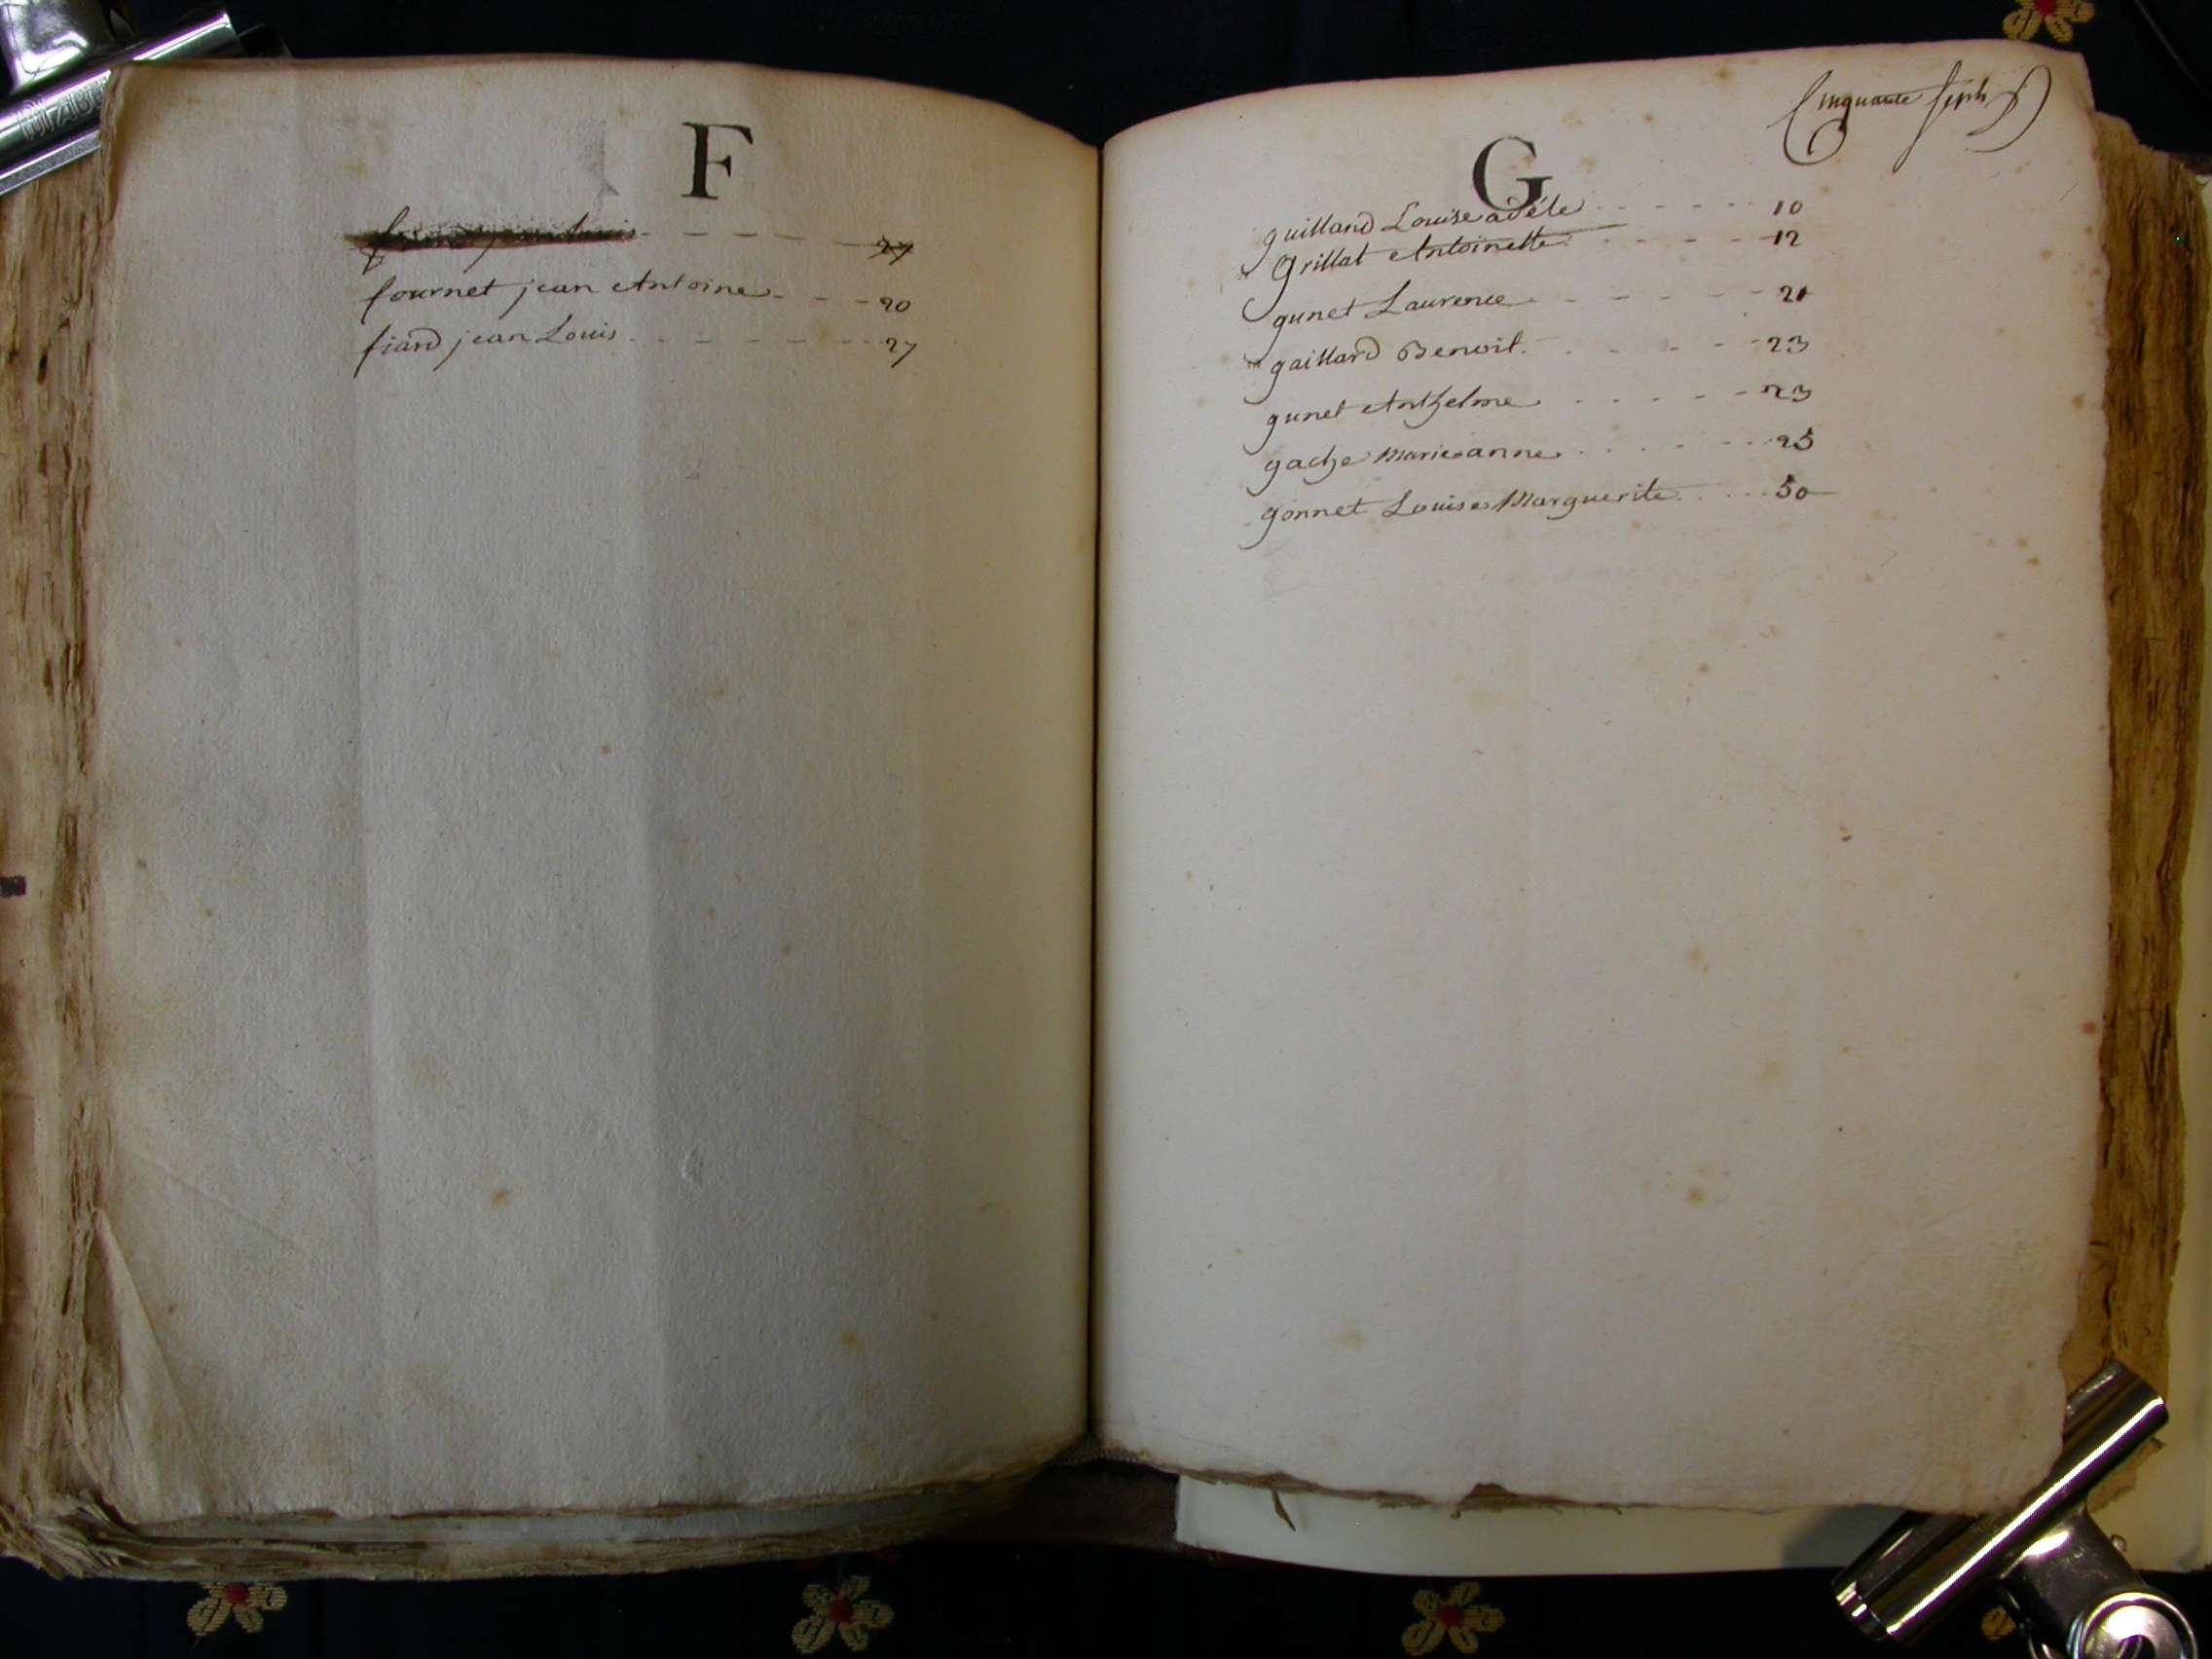 F
27
fournet jean Antoine - - - 20
fiard jean Louis - - - - - 27
Cinquante sept
G
guilland Louise adéle - - - - - 10
Grillat Antoinette - - - - - 12
gunet Laurence - - - - - 21
gaillard Benoit - - - - - 23
gunet Anthelme - - - - - 23
gache marie anne - - - - - 25
gonnet Louise Marguerite - - - - - 50